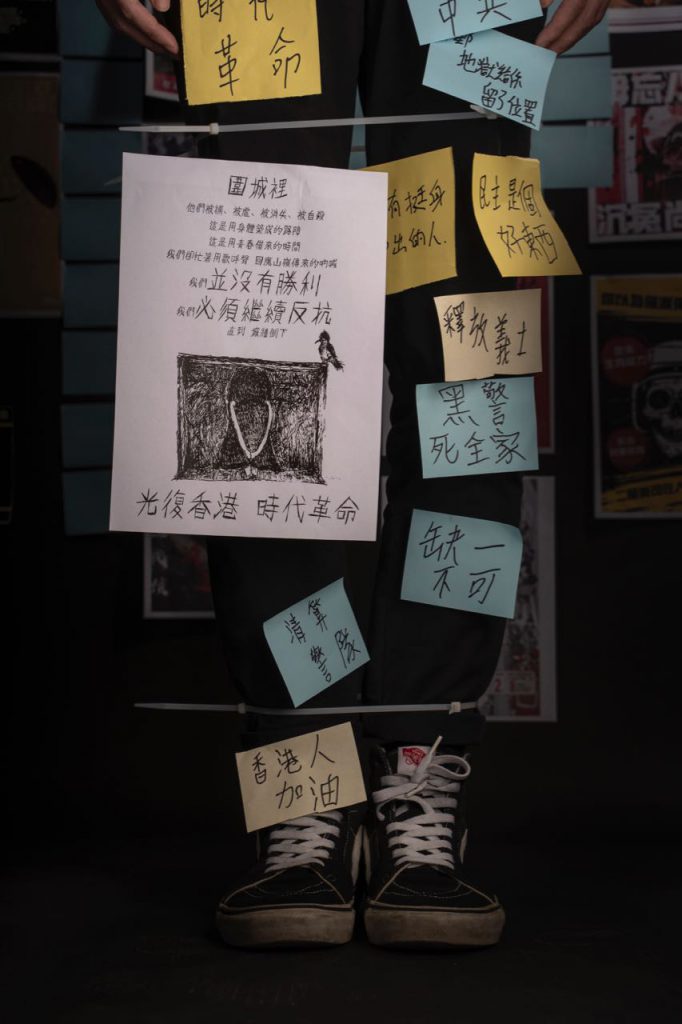 時代
革命
中共
地獄給你
留了位置
圍城裡
他們被捕、被虐、被消失、被自殺
這是用身體築成的路障
這是用青春借來的時間
我們 著用歡呼聲 回應山嶺傳來的吶喊
我們並沒有勝利
我們必須繼續反抗
直到 城牆倒下
光復香港 時代革命
有挺身
出的人.
民主是個
好東西
釋放義士
黑警
死全家
缺一
不可
清算
警隊
香港人
加油